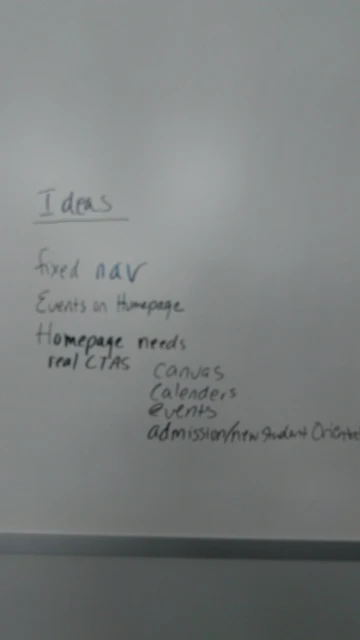 Ideas
fixed nav
Events on Homepage
Homepage needs
real CTAS
canvas
Calenders
events
admission/new student